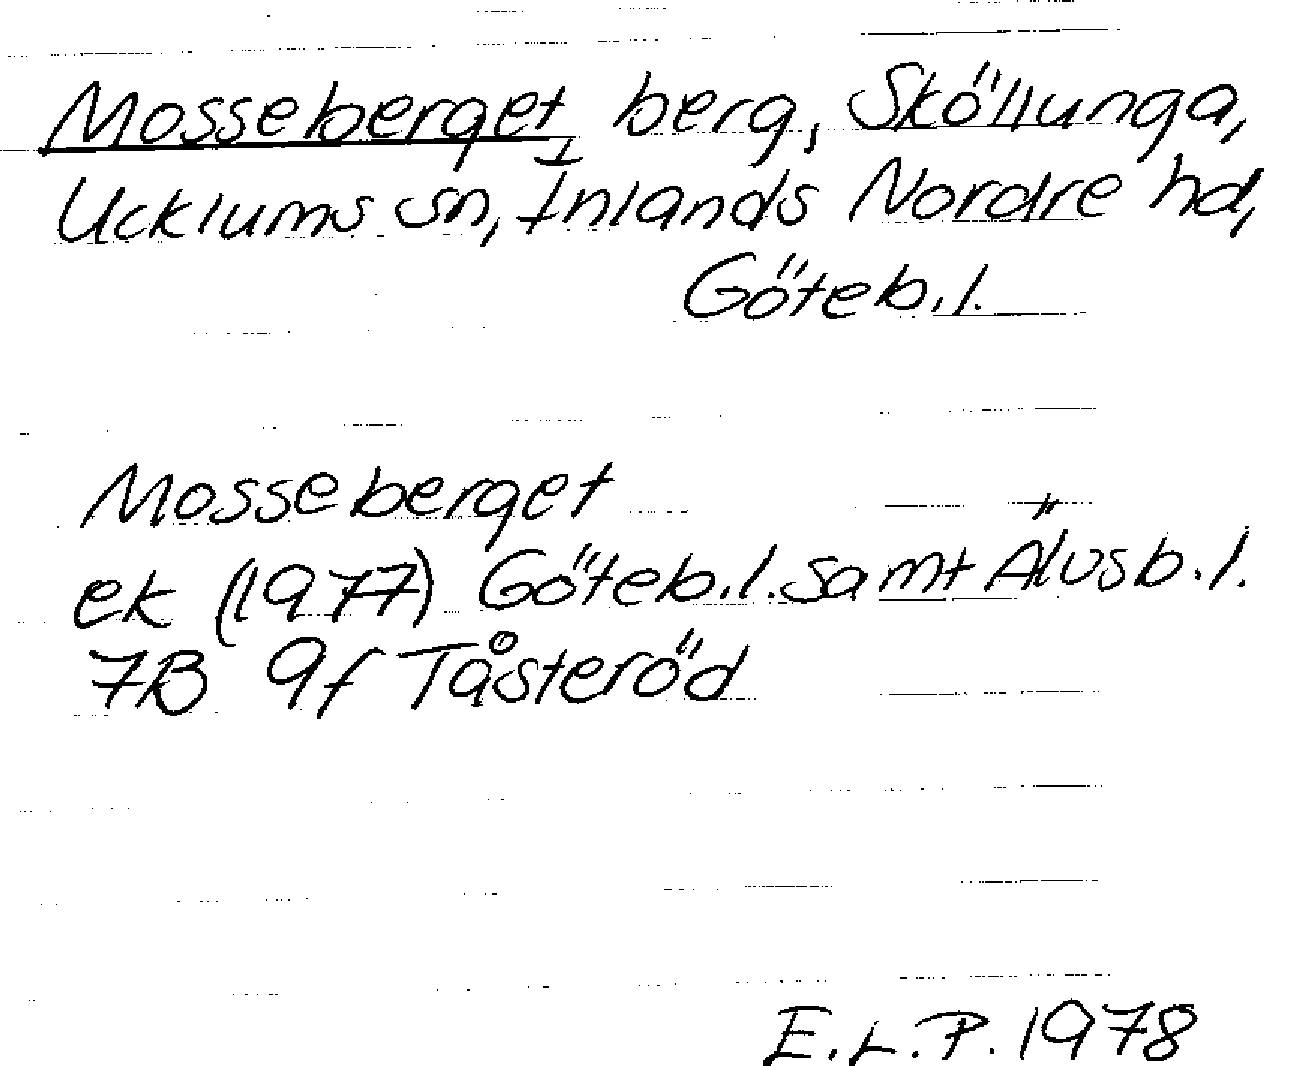 Mosseberget, berg, Sköllunga,
Ucklums sn, Inlands Nordre hd,
Göteb.l.
Mosseberget
ek (1977) Göteb.l. samt Älvsb.l.
7B 9f Tåsteröd
E.L.P. 1978